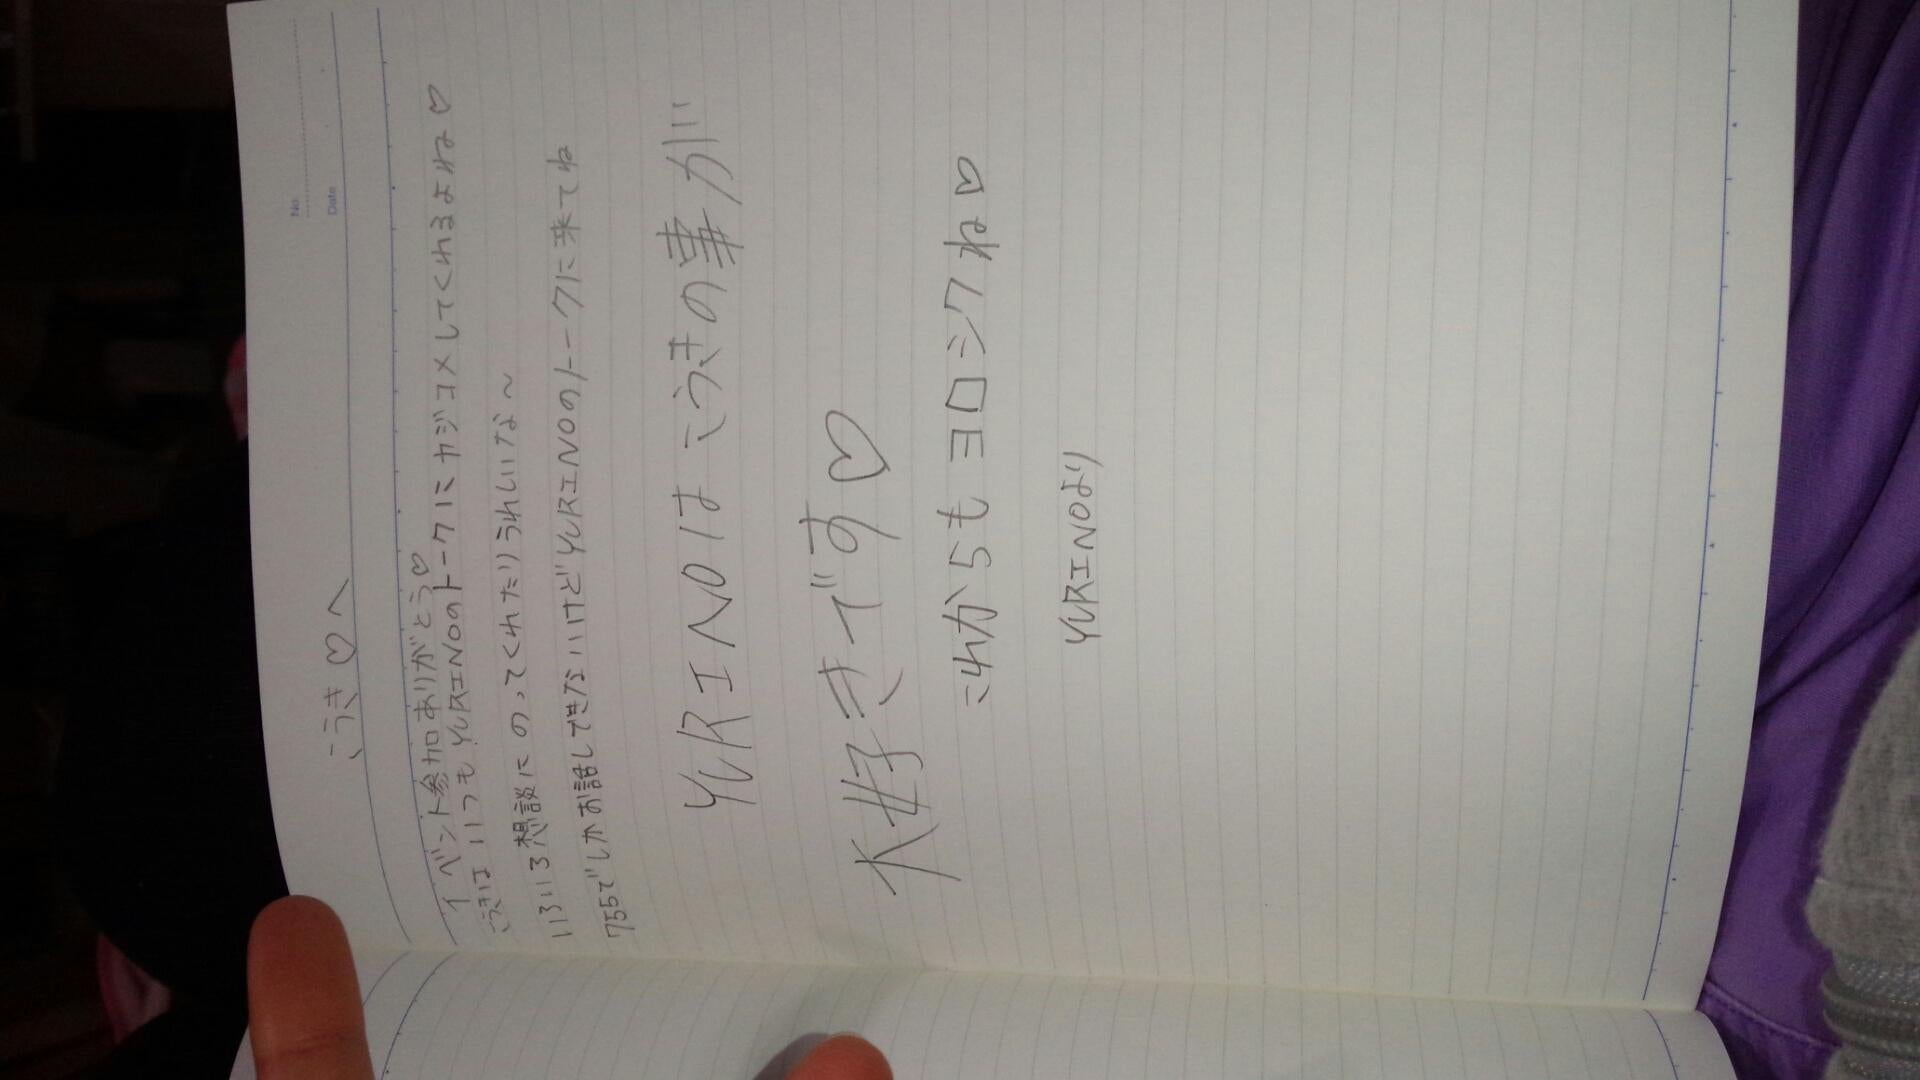 No.
Date
こうき♡へ
イベント参加ありがとう♡
こうきはいつもYURINOのトークにカジコメしてくれるよね♡
いろいろ想談にのってくれたりうれしいな〜
755でしかお話しできないけどYURINOのトークに来てね
YURINOはこうきの事が
大好きです♡
これからもヨロシクね♡
YURINOより